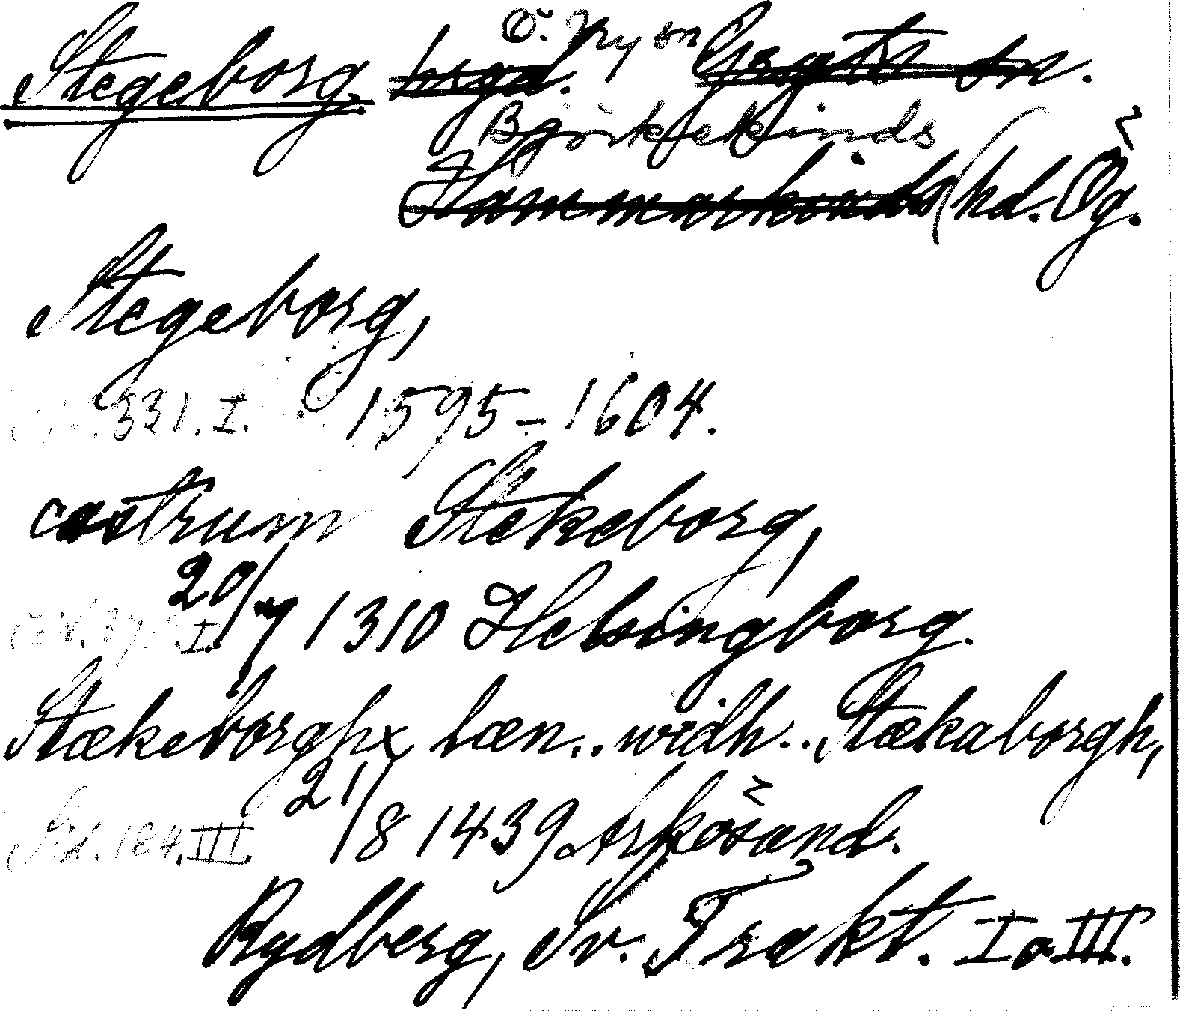 Stegeborg
Ö. Ny sn
Björkekinds
Hammarkinds hd. Ög.
Stegeborg,
331. I. 1595-1604.
castrum Stekeborg,
20/7 1310 Helsingborg.
I.
Stækeborghx læn.. widh.. Stækaborgh,
184. III. 21/8 1439 Arkösund.
Rydberg, Sv. Trakt. I o III.